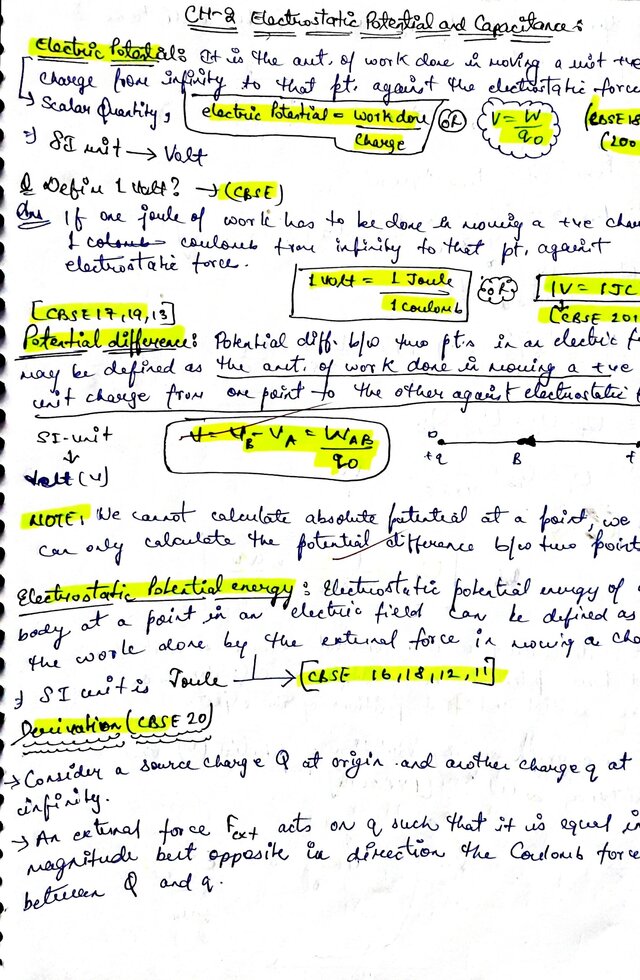 CH-2 Electrostatic Potential and Capacitance:
Electric Potential: It is the amt. of work done in moving a unit +ve
charge from infinity to that pt. against the electrostatic force
→ Scalar Quantity,
electric Potential = work done / charge OR V = W / q0
(CBSE 18
(200
⇒ SI unit → Volt
Q Define 1 Volt? → (CBSE)
Ans If one joule of work has to be done in moving a +ve
1 coulomb from infinity to that pt. against
electrostatic force.
1 volt = 1 Joule / 1 Coulomb OR 1V = 1JC
[CBSE 201
[CBSE 17, 19, 13]
Potential difference: Potential diff. b/w two pt.s in an electric
may be defined as the amt. of work done in moving a +ve
unit charge from one point to the other against electrostatic
SI-unit
↓
Volt (V)
V = VB - VA = WAB / q0
+q B
NOTE: We cannot calculate absolute potential at a point, we
can only calculate the potential difference b/w two point
Electrostatic Potential energy: Electrostatic potential energy of
body at a point in an electric field can be defined as
the work done by the external force in moving a
⇒ SI unit is Joule → [CBSE 16, 18, 12, 11]
Derivation (CBSE 20)
→ Consider a source charge Q at origin and another charge q at
infinity.
→ An external force Fext acts on q such that it is equal in
magnitude but opposite in direction the Coulomb force
between Q and q.